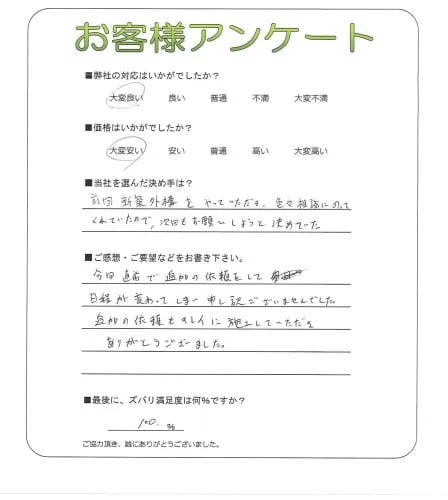 お客様アンケート
■弊社の対応はいかがでしたか?
大変良い 良い 普通 不満 大変不満
■価格はいかがでしたか?
大変安い 安い 普通 高い 大変高い
■当社を選んだ決め手は?
前回 新築外構をやっていただき、色々相談にのって
くれていたので、次回もお願いしようと決めていた
■ご感想・ご要望などをお書き下さい。
今回 直前で追加の依頼をして
日程が変わってしまい申し訳ございませんでした。
追加の依頼もキレイに施工していただき
ありがとうございました。
■最後に、ズバリ満足度は何%ですか?
100. %
ご協力頂き、誠にありがとうございました。